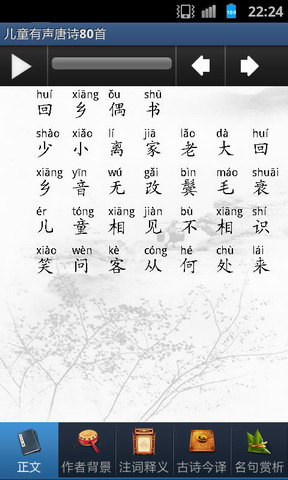 22:24
儿童有声唐诗80首
huí xiāng ǒu shū
回 乡 偶 书
shào xiǎo lí jiā lǎo dà huí
少 小 离 家 老 大 回
xiāng yīn wú gǎi bìn máo shuāi
乡 音 无 改 鬓 毛 衰
ér tóng xiāng jiàn bù xiāng shí
儿 童 相 见 不 相 识
xiào wèn kè cóng hé chù lái
笑 问 客 从 何 处 来
正文 作者背景 注词释义 古诗今译 名句赏析